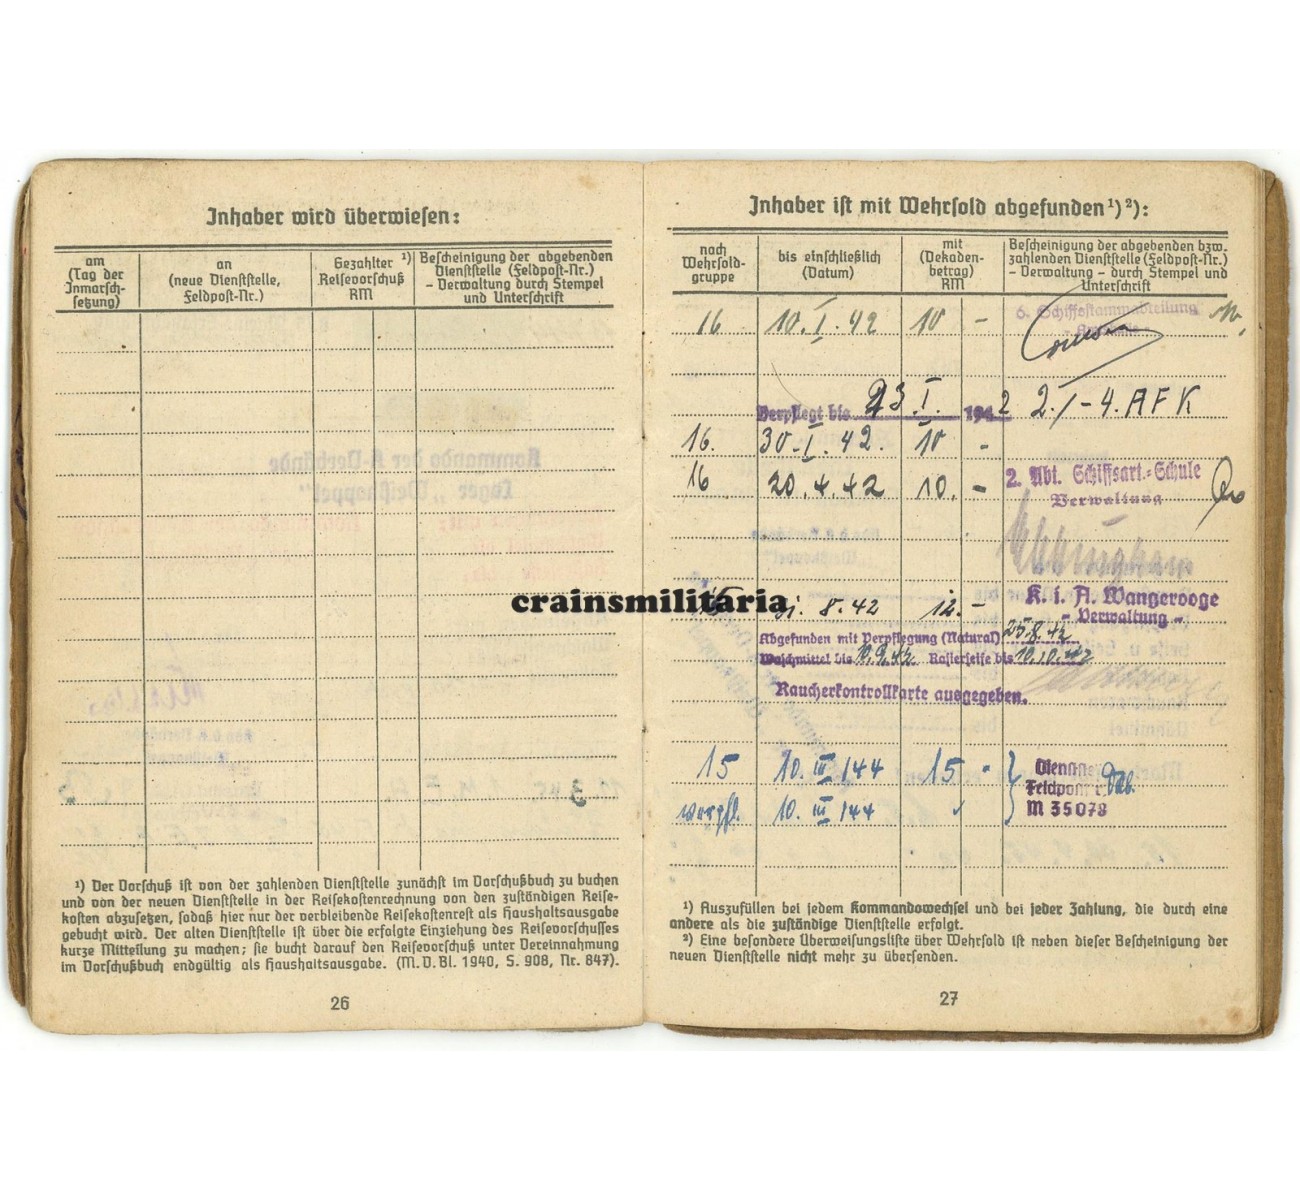 Inhaber wird überwiesen:
am
(Tag der
Inmarsch-
setzung)
an
(neue Dienststelle,
Feldpost-Nr.)
Gezahlter ¹)
Reisevorschuß
RM
Bescheinigung der abgebenden
Dienststelle (Feldpost-Nr.)
- Verwaltung durch Stempel
und Unterschrift
¹) Der Vorschuß ist von der zahlenden Dienststelle zunächst im Vorschußbuch zu buchen
und von der neuen Dienststelle in der Reisekostenrechnung von den zuständigen Reise-
kosten abzusetzen, sodaß hier nur der verbleibende Reisekostenrest als Haushaltsausgabe
gebucht wird. Der alten Dienststelle ist über die erfolgte Einziehung des Reisevorschusses
kurze Mitteilung zu machen; sie bucht darauf den Reisevorschuß unter Vereinnahmung
im Vorschußbuch endgültig als Haushaltsausgabe. (M.V.Bl. 1940, S. 908, Nr. 847).
26
Inhaber ist mit Wehrsold abgefunden ¹) ²):
nach
Wehrsold-
gruppe
bis einschließlich
(Datum)
mit
(Dekaden-
betrag)
RM
Bescheinigung der abgebenden bzw.
zahlenden Dienststelle (Feldpost-Nr.)
- Verwaltung - durch Stempel und
Unterschrift
16 10. I. 42 10 - 6. Schiffsstammabteilung
Verpflegt bis 23. I. 1942 2. I - 4. A F K
16. 30. I. 42. 10 -
16 20. 4. 42 10. - 2. Abt. Schiffsart.-Schule
Verwaltung
8. 42 12. - K. i. A. Wangerooge
- Verwaltung -
Abgefunden mit Verpflegung (Natural) 25.8.42
Waschmittel bis 10.9.42 Rasierseife bis 10.10.42
Raucherkontrollkarte ausgegeben.
15 10. III. 44 15 - Dienstst
Feldpost
verpfl. 10. III. 44 M 35078
¹) Auszufüllen bei jedem Kommandowechsel und bei jeder Zahlung, die durch eine
andere als die zuständige Dienststelle erfolgt.
²) Eine besondere Überweisungsliste über Wehrsold ist neben dieser Bescheinigung der
neuen Dienststelle nicht mehr zu übersenden.
27
crainsmilitaria